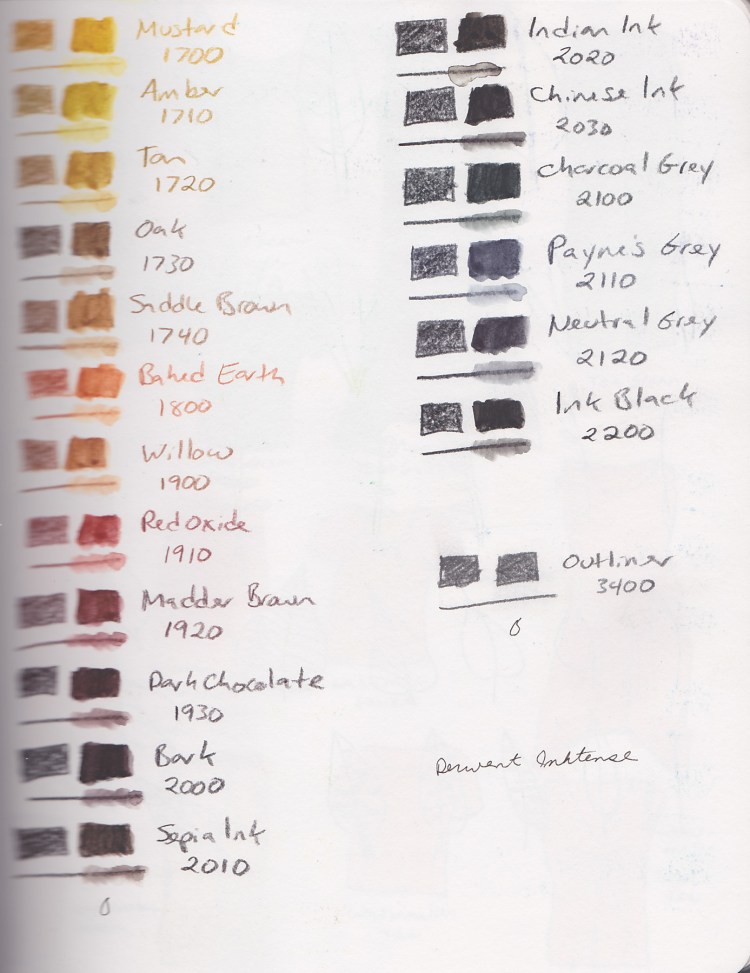 Mustard
1700
Amber
1710
Tan
1720
Oak
1730
Saddle Brown
1740
Baked Earth
1800
Willow
1900
Red Oxide
1910
Madder Brown
1920
Dark Chocolate
1930
Bark
2000
Sepia Ink
2010
Indian Ink
2020
Chinese Ink
2030
Charcoal Grey
2100
Payne's Grey
2110
Neutral Grey
2120
Ink Black
2200
Outliner
3400
Derwent Inktense